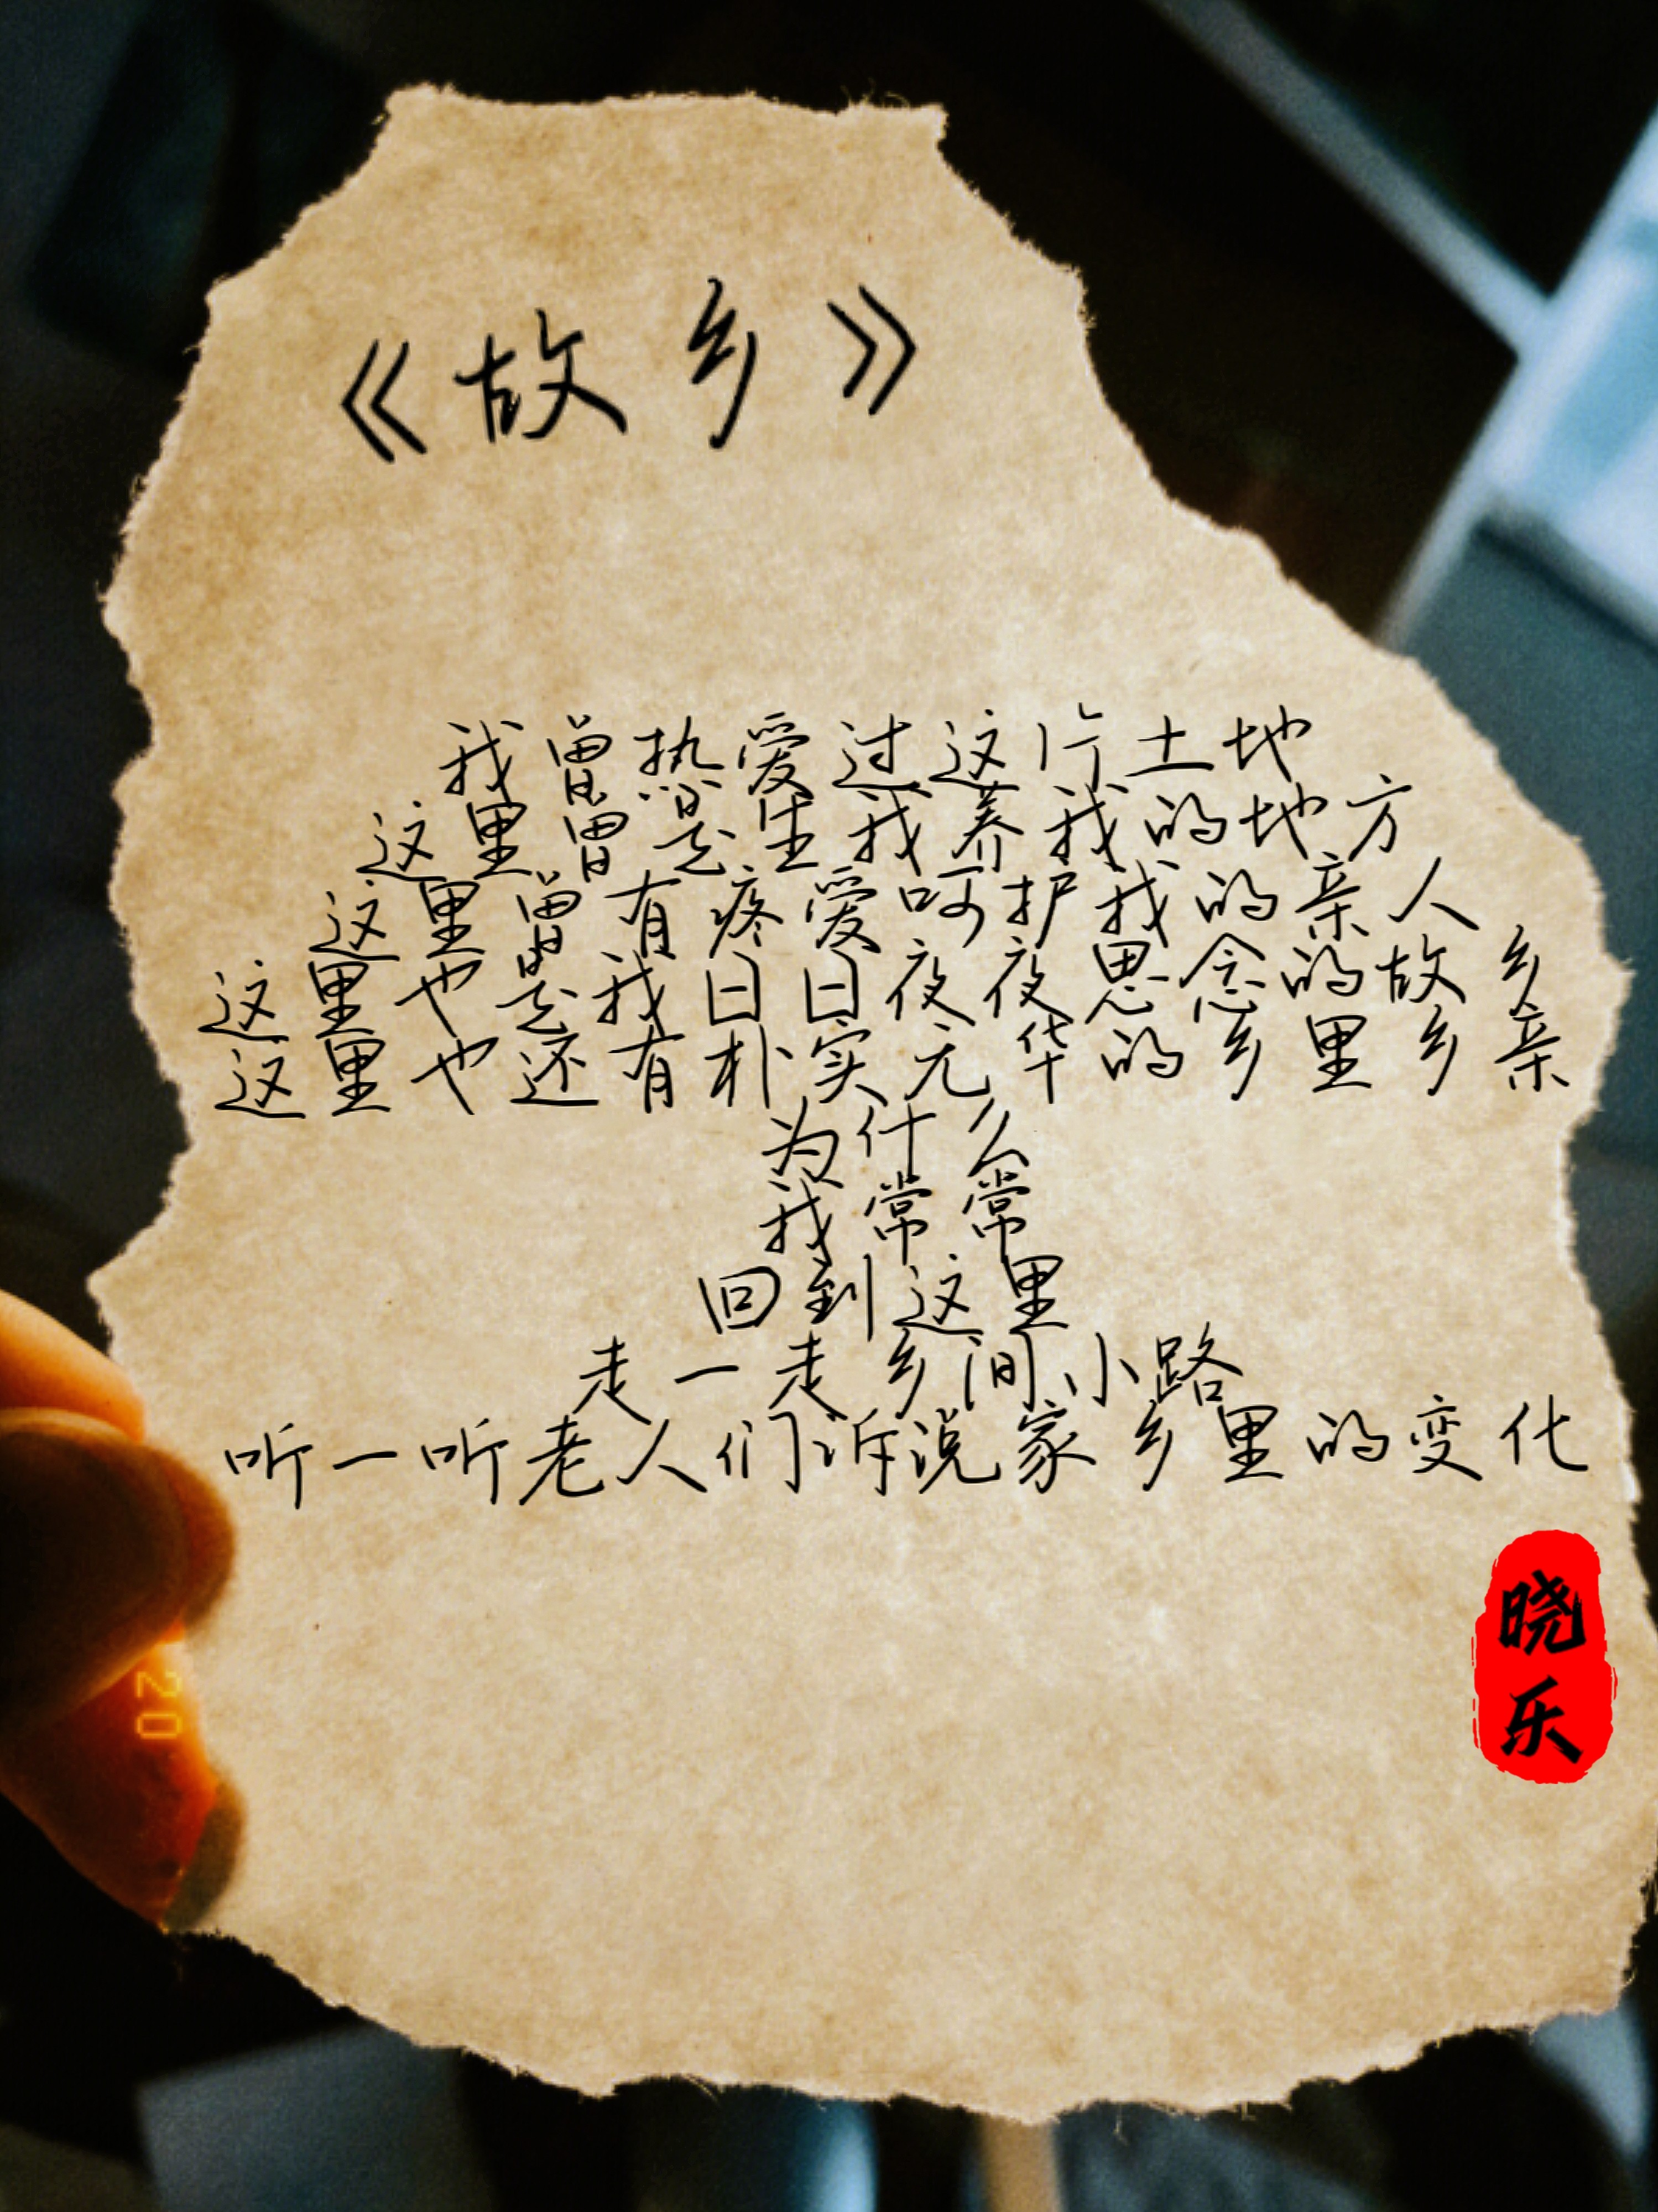 《故乡》
我曾热爱过这片土地
这里曾是生我养我的地方
这里曾有疼爱呵护我的亲人
这里也是我日日夜夜思念的故乡
这里也还有朴实无华的乡里乡亲
为什么
我常常
回到这里
走一走乡间小路
听一听老人们诉说家乡里的变化
晓
乐
20